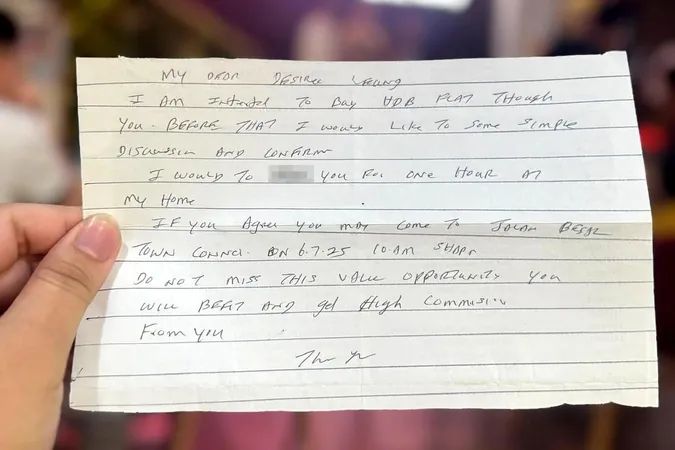 MY DEAR DESIREE LEUNG
I AM Intented TO Buy HDB FLAT THOUGH
YOU. BEFORE THAT I would LIKE TO Some SIMPLE
DISCUSSION AND CONFIRM
I WOULD TO YOU FOR ONE HOUR AT
MY HOME
IF YOU Agree YOU MAY COME TO JALAN BESAR
TOWN COUNCIL ON 6.7.25 10 AM SHARP
DO NOT MISS THIS VALUE OPPORTUNITY YOU
WILL AND get High COMMISSION
FROM YOU